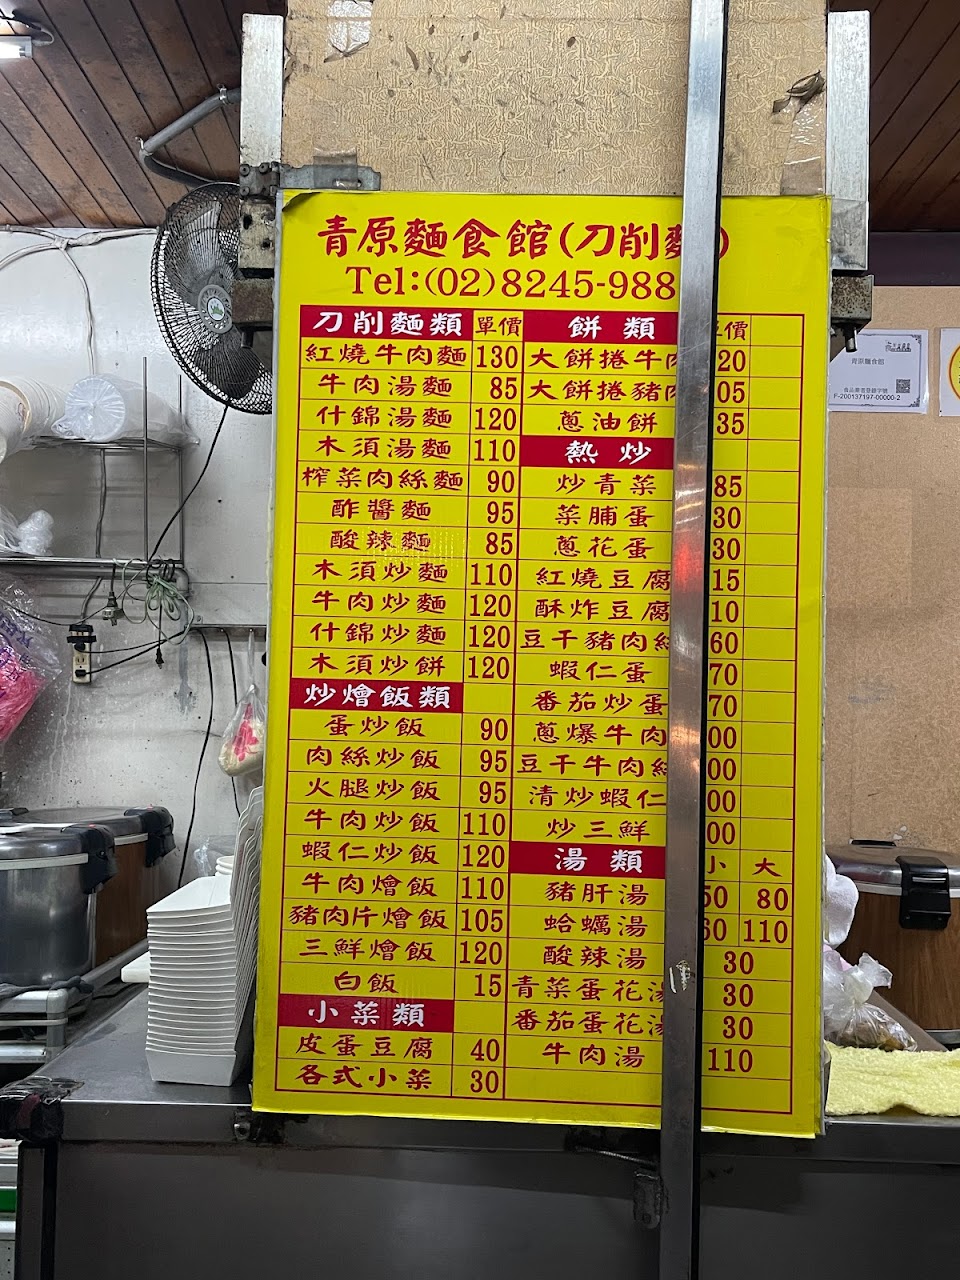 青原麵食館(刀削麵)
Tel:(02)8245-988
刀削麵類 單價 餅類 單價
紅燒牛肉麵 130 大餅捲牛肉 20
牛肉湯麵 85 大餅捲豬肉 05
什錦湯麵 120 蔥油餅 35
木須湯麵 110 熱炒
榨菜肉絲麵 90 炒青菜 85
酢醬麵 95 菜脯蛋 30
酸辣麵 85 蔥花蛋 30
木須炒麵 110 紅燒豆腐 15
牛肉炒麵 120 酥炸豆腐 10
什錦炒麵 120 豆干豬肉絲 60
木須炒餅 120 蝦仁蛋 70
炒燴飯類 番茄炒蛋 70
蛋炒飯 90 蔥爆牛肉 00
肉絲炒飯 95 豆干牛肉絲 00
火腿炒飯 95 清炒蝦仁 00
牛肉炒飯 110 炒三鮮 00
蝦仁炒飯 120 湯類 小 大
牛肉燴飯 110 豬肝湯 50 80
豬肉片燴飯 105 蛤蠣湯 60 110
三鮮燴飯 120 酸辣湯 30
白飯 15 青菜蛋花湯 30
小菜類 番茄蛋花湯 30
皮蛋豆腐 40 牛肉湯 110
各式小菜 30
青原麵食館
食品業者登錄字號
F-200137197-00000-2